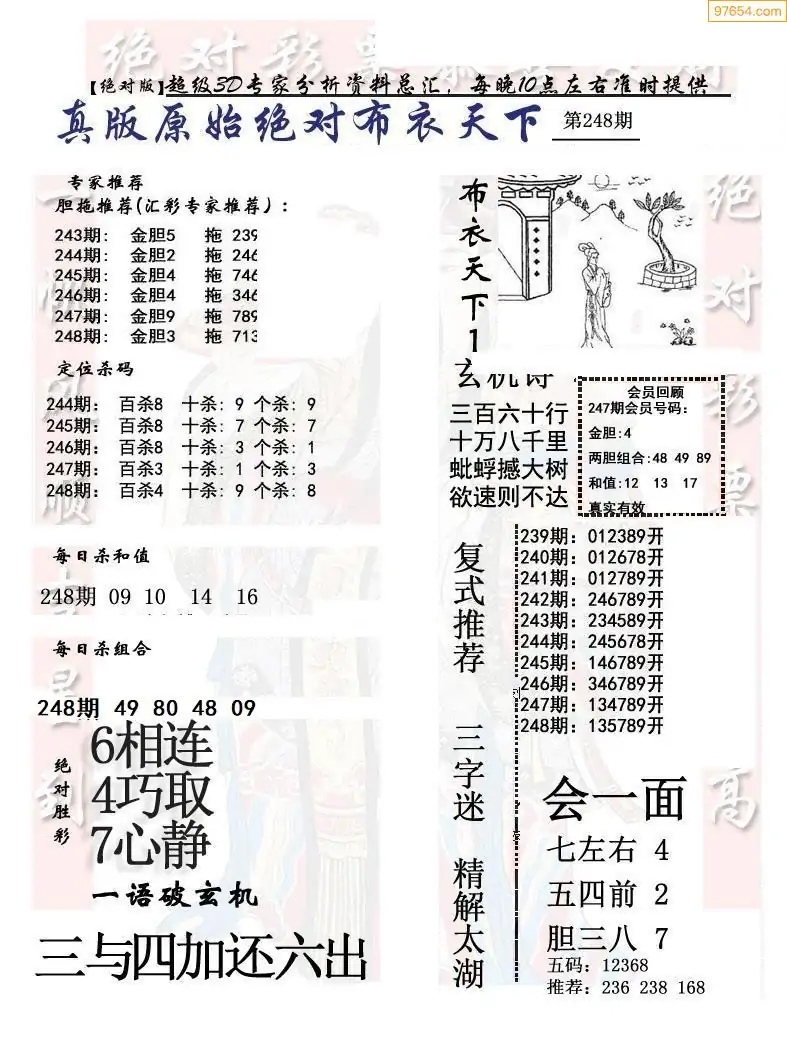 97654.com
【绝对版】超级3D专家分析资料总汇，每晚10点左右准时提供
真版原始绝对布衣天下 第248期
专家推荐
胆拖推荐(汇彩专家推荐)：
243期： 金胆5 拖 239
244期： 金胆2 拖 246
245期： 金胆4 拖 746
246期： 金胆4 拖 346
247期： 金胆9 拖 789
248期： 金胆3 拖 713
定位杀码
244期： 百杀8 十杀：9 个杀：9
245期： 百杀8 十杀：7 个杀：7
246期： 百杀8 十杀：3 个杀：1
247期： 百杀3 十杀：1 个杀：3
248期： 百杀4 十杀：9 个杀：8
每日杀和值
248期 09 10 14 16
每日杀组合
248期 49 80 48 09
绝对胜彩
6相连
4巧取
7心静
一语破玄机
三与四加还六出
布衣天下1
玄机诗
三百六十行
十万八千里
蚍蜉撼大树
欲速则不达
会员回顾
247期会员号码：
金胆:4
两胆组合:48 49 89
和值:12 13 17
真实有效
复式推荐
239期：012389开
240期：012678开
241期：012789开
242期：246789开
243期：234589开
244期：245678开
245期：146789开
246期：346789开
247期：134789开
248期：135789开
三字迷 精解太湖
会一面
七左右 4
五四前 2
胆三八 7
五码：12368
推荐：236 238 168
绝对彩票
一帆风顺
绝对彩票高